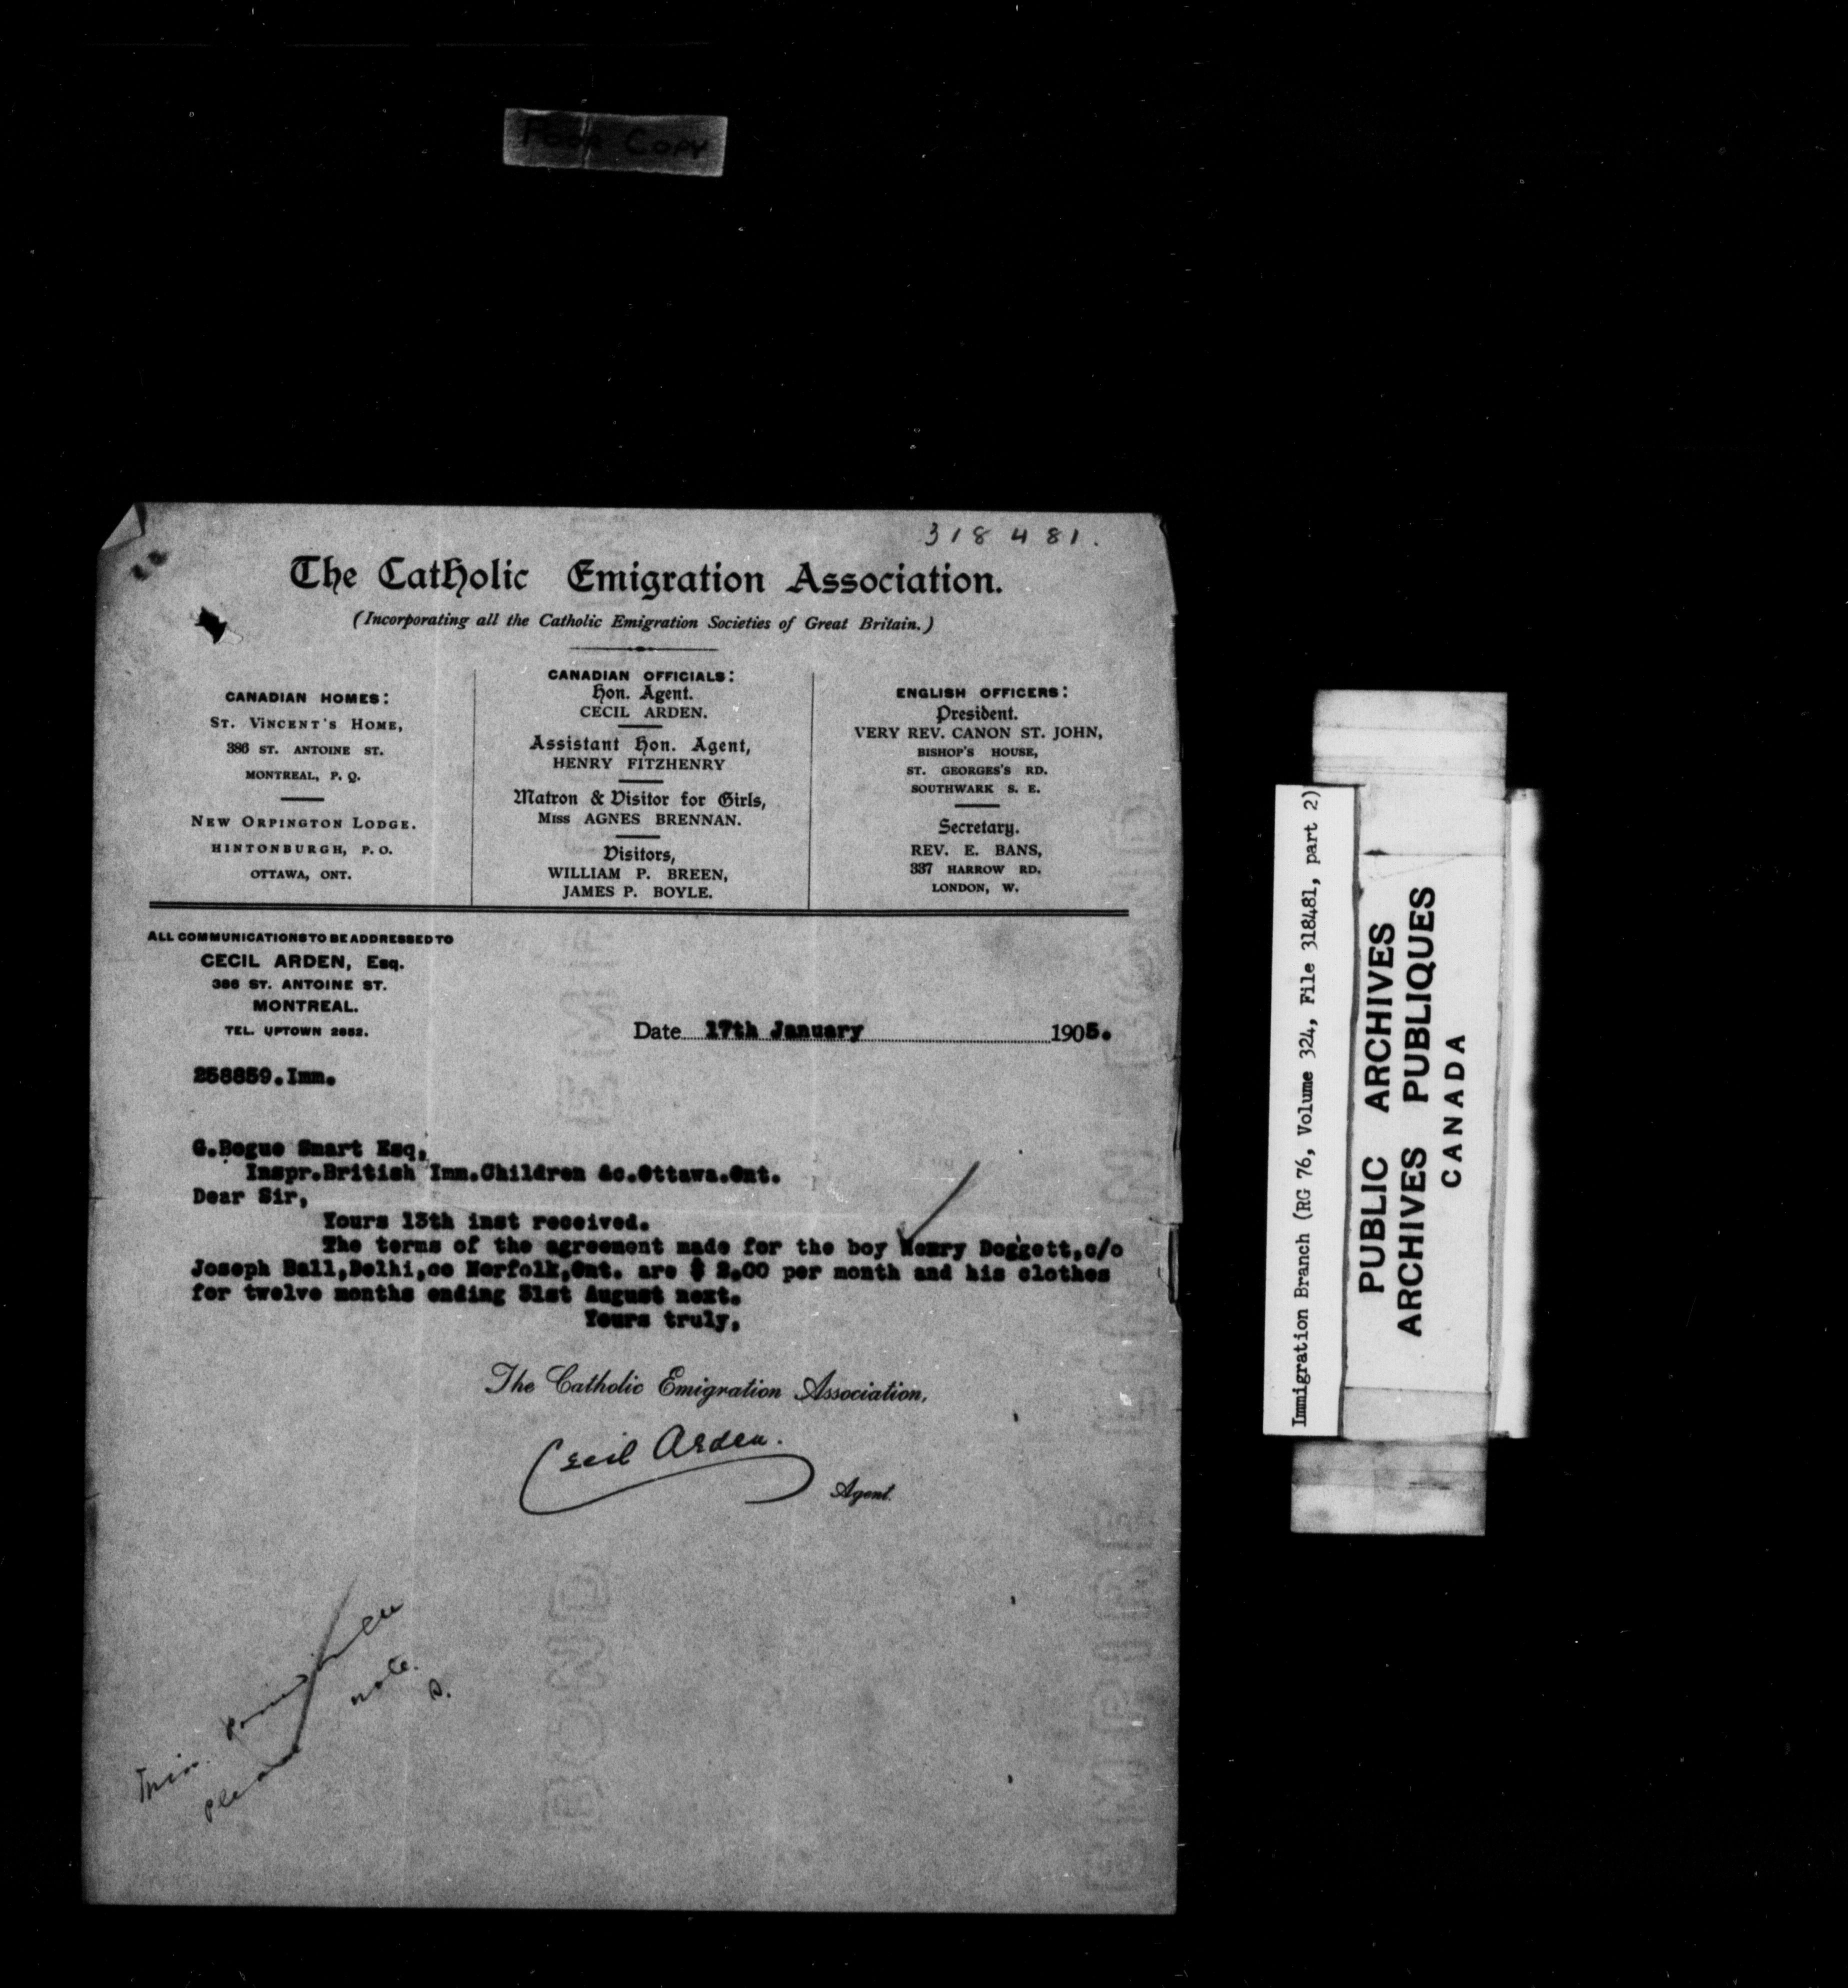 Poor Copy
318481.
The Catholic Emigration Association.
(Incorporating all the Catholic Emigration Societies of Great Britain.)
CANADIAN HOMES:
ST. VINCENT'S HOME,
386 ST. ANTOINE ST.
MONTREAL, P. Q.
NEW ORPINGTON LODGE.
HINTONBURGH, P. O.
OTTAWA, ONT.
CANADIAN OFFICIALS:
Hon. Agent.
CECIL ARDEN.
Assistant Hon. Agent,
HENRY FITZHENRY
Matron & Visitor for Girls,
Miss AGNES BRENNAN.
Visitors,
WILLIAM P. BREEN,
JAMES P. BOYLE.
ENGLISH OFFICERS:
President.
VERY REV. CANON ST. JOHN,
BISHOP'S HOUSE,
ST. GEORGES'S RD.
SOUTHWARK S. E.
Secretary.
REV. E. BANS,
337 HARROW RD.
LONDON, W.
ALL COMMUNICATIONS TO BE ADDRESSED TO
CECIL ARDEN, Esq.
386 ST. ANTOINE ST.
MONTREAL.
TEL. UPTOWN 2652.
Date 17th January 1905.
258859.Imm.
G.Bogue Smart Esq,
Inspr.British Imm.Children &c.Ottawa.Ont.
Dear Sir,
Yours 13th inst received.
The terms of the agreement made for the boy Henry Doggett,c/o
Joseph Ball,Delhi,co Norfolk,Ont. are $ 2.00 per month and his clothes
for twelve months ending 31st August next.
Yours truly,
The Catholic Emigration Association,
Cecil Arden.
Agent.
Miss
please note.
S.
Immigration Branch (RG 76, Volume 324, File 318481, part 2)
PUBLIC ARCHIVES
ARCHIVES PUBLIQUES
CANADA